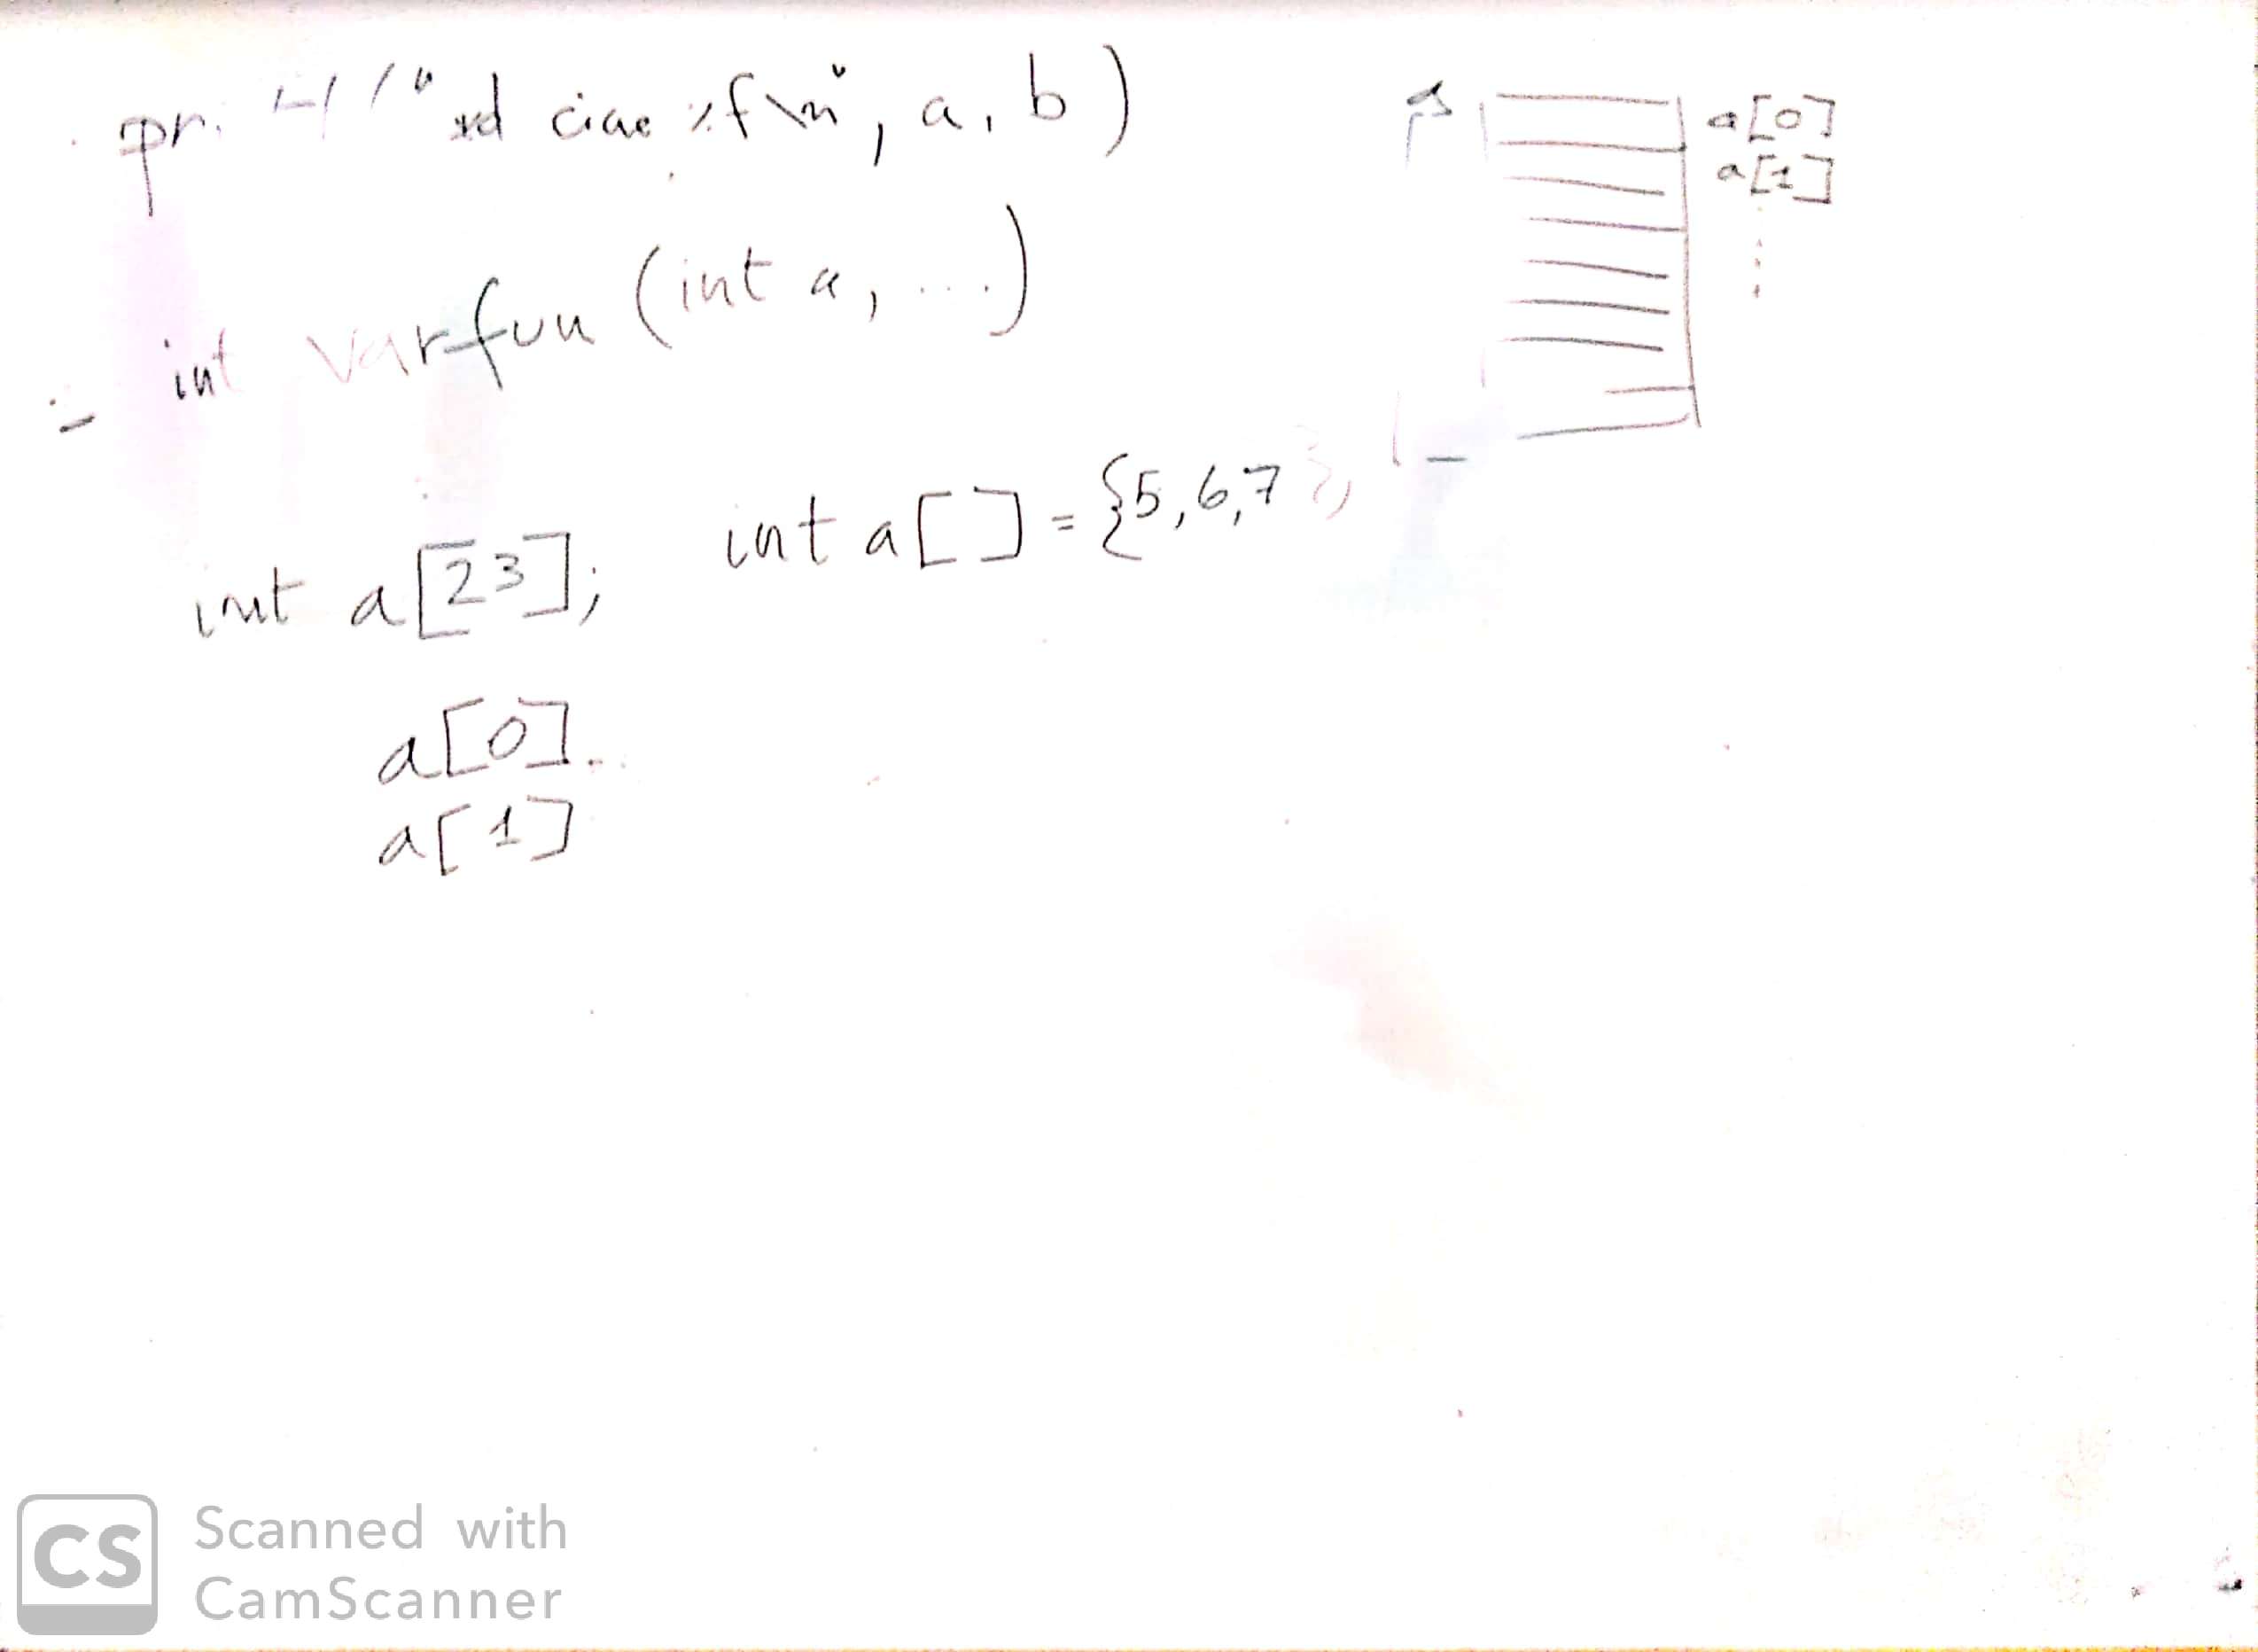 printf("%d ciao %f\n", a, b)
int varfun (int a, ...)
int a[23]; int a[] = {5,6,7};
a[0]
a[1]
a
a[0]
a[1]
CS Scanned with
CamScanner